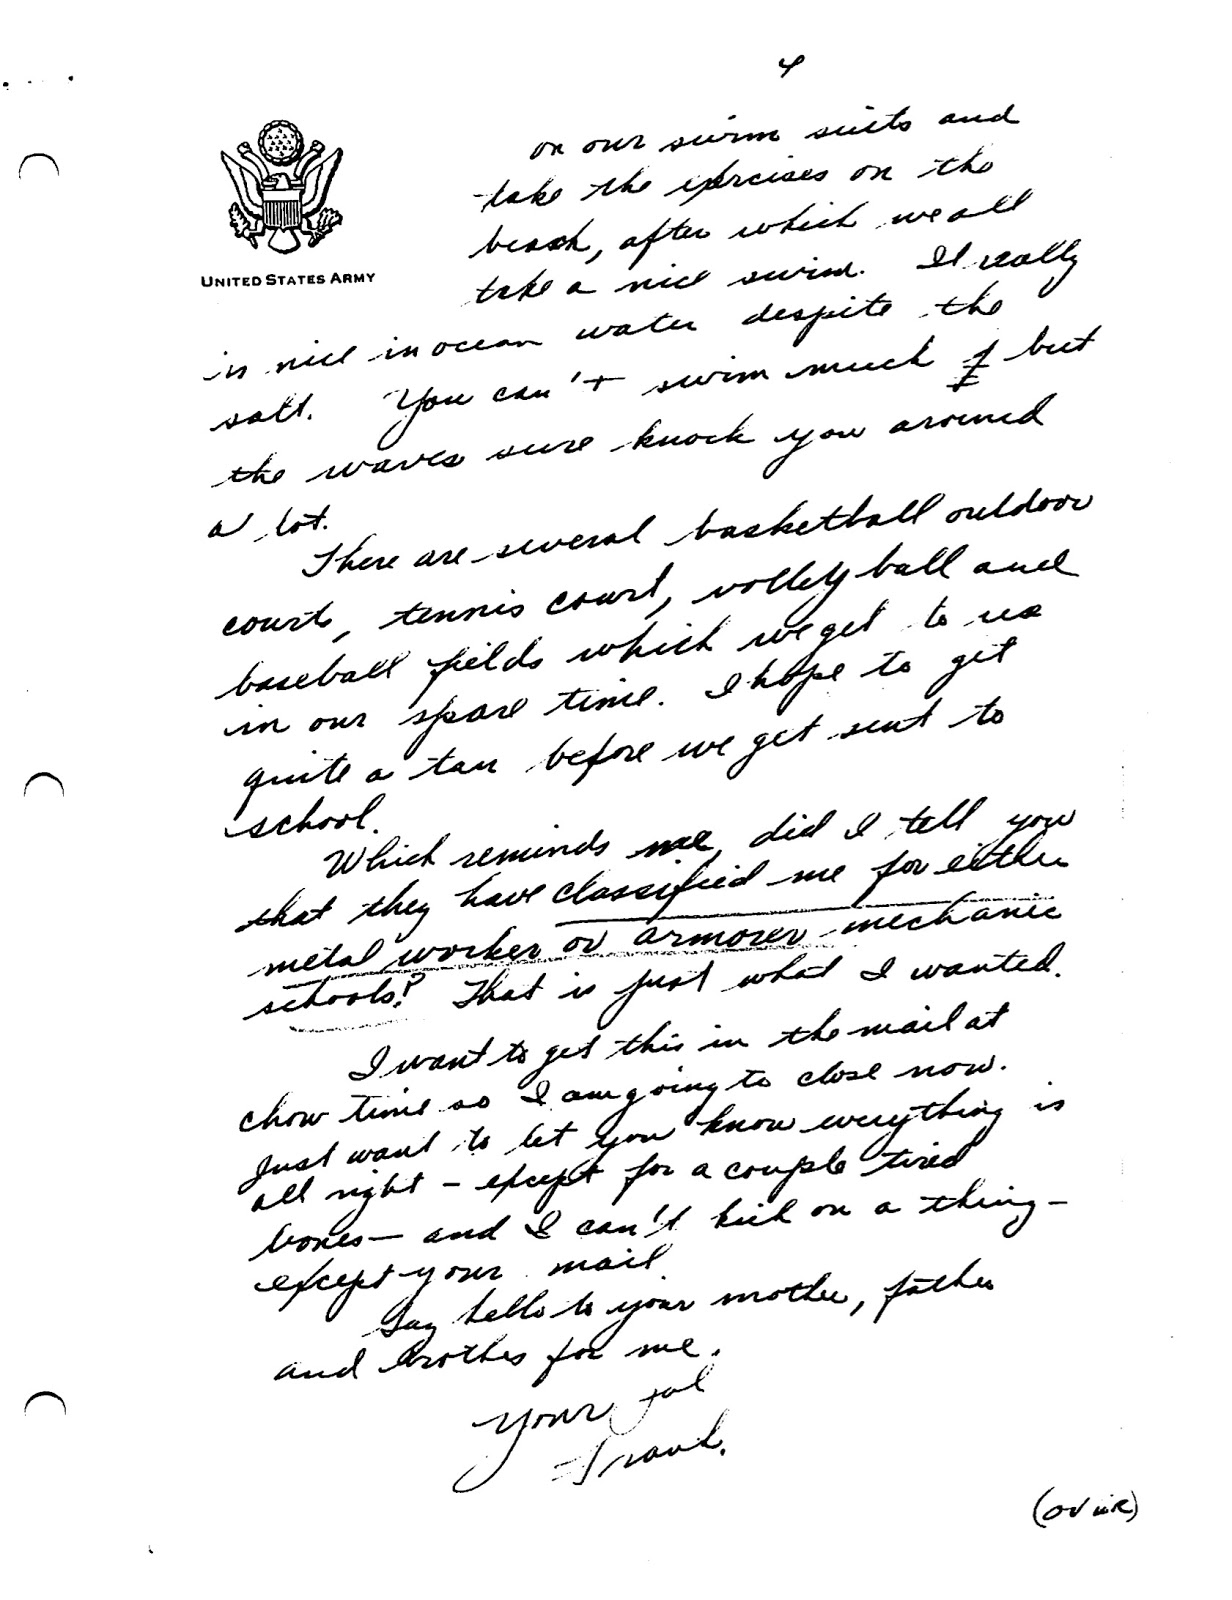 4
on our swim suits and
take the exrcises on the
beach, after which we all
UNITED STATES ARMY
take a nice swim. It really
is nice in ocean water despite the
salt. You can't swim much but
the waves sure knock you around
a lot.
There are several basketball outdoor
courts, tennis court, volley ball and
baseball fields which we get to use
in our spare time. I hope to get
quite a tan before we get sent to
school.
Which reminds me, did I tell you
that they have classified me for either
metal worker or armorer mechanic
schools? That is just what I wanted.
I want to get this in the mail at
chow time so I am going to close now.
Just want to let you know everything is
all right – except for a couple tired
bones – and I can't kick on a thing –
except your mail.
Say hello to your mother, father
and brother for me.
Your pal
Frank.
(OVER)